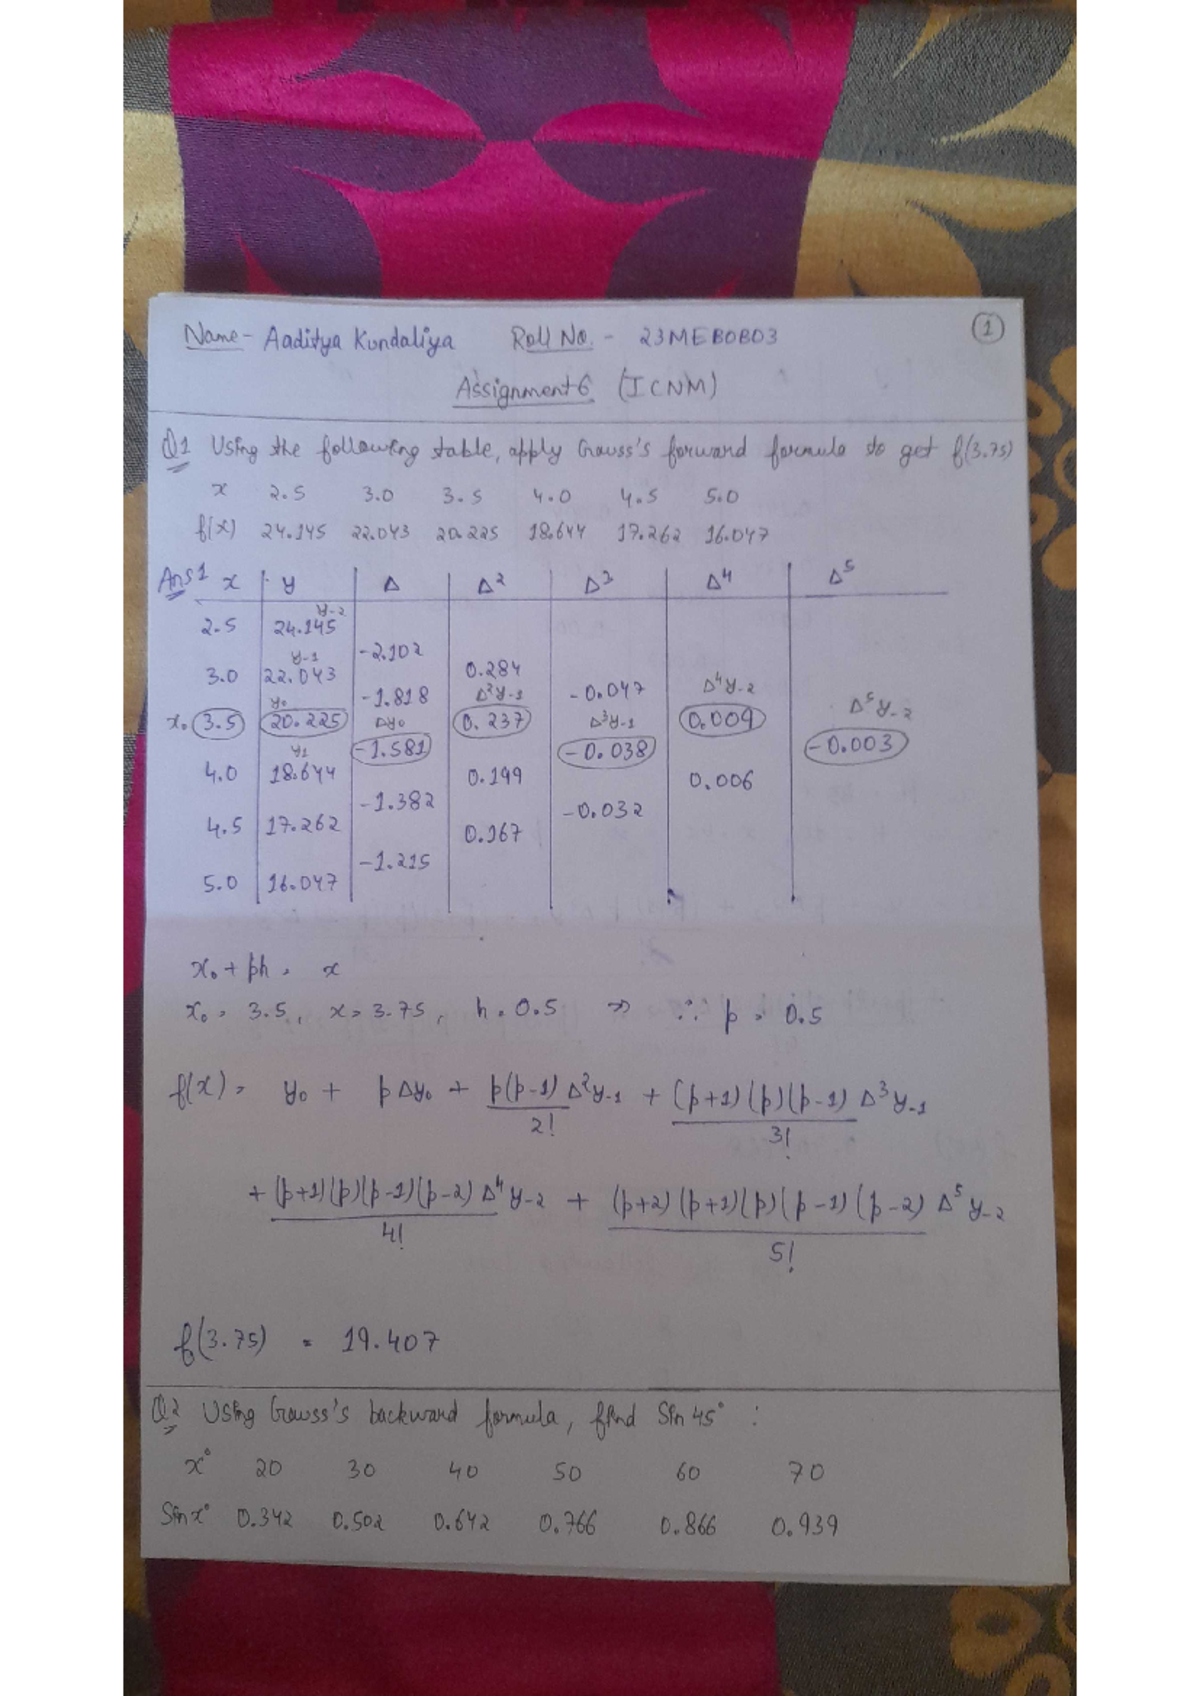 Name- Aaditya Kundaliya Roll No. - 23MEB0B03 1
Assignment 6 (ICNM)
Q1 Using the following table, apply Gauss's forward formula to get f(3.75)
x 2.5 3.0 3.5 4.0 4.5 5.0
f(x) 24.145 22.043 20.225 18.644 17.262 16.047
Ans1 x y Δ Δ² Δ³ Δ⁴ Δ⁵
y-2
2.5 24.145
-2.102
y-1
3.0 22.043 0.284
-1.818 Δ²y-1 -0.047 Δ⁴y-2
y0 Δ⁵y-2
x₀ 3.5 20.225 Δy0 0.237 Δ³y-1 0.009
y1 -1.581 -0.038 -0.003
4.0 18.644 0.199 0.006
-1.382 -0.032
4.5 17.262 0.167
-1.215
5.0 16.047
x₀ + ph = x
x₀ = 3.5, x = 3.75, h = 0.5 ⇒ ∴ p = 0.5
f(x) = y₀ + pΔy₀ + p(p-1)Δ²y-1 + (p+1)(p)(p-1) Δ³y-1
2! 3!
+ (p+1)(p)(p-1)(p-2) Δ⁴y-2 + (p+2)(p+1)(p)(p-1)(p-2) Δ⁵y-2
4! 5!
f(3.75) = 19.407
Q2 Using Gauss's backward formula, find Sin 45° :
x° 20 30 40 50 60 70
Sin x° 0.342 0.502 0.642 0.766 0.866 0.939